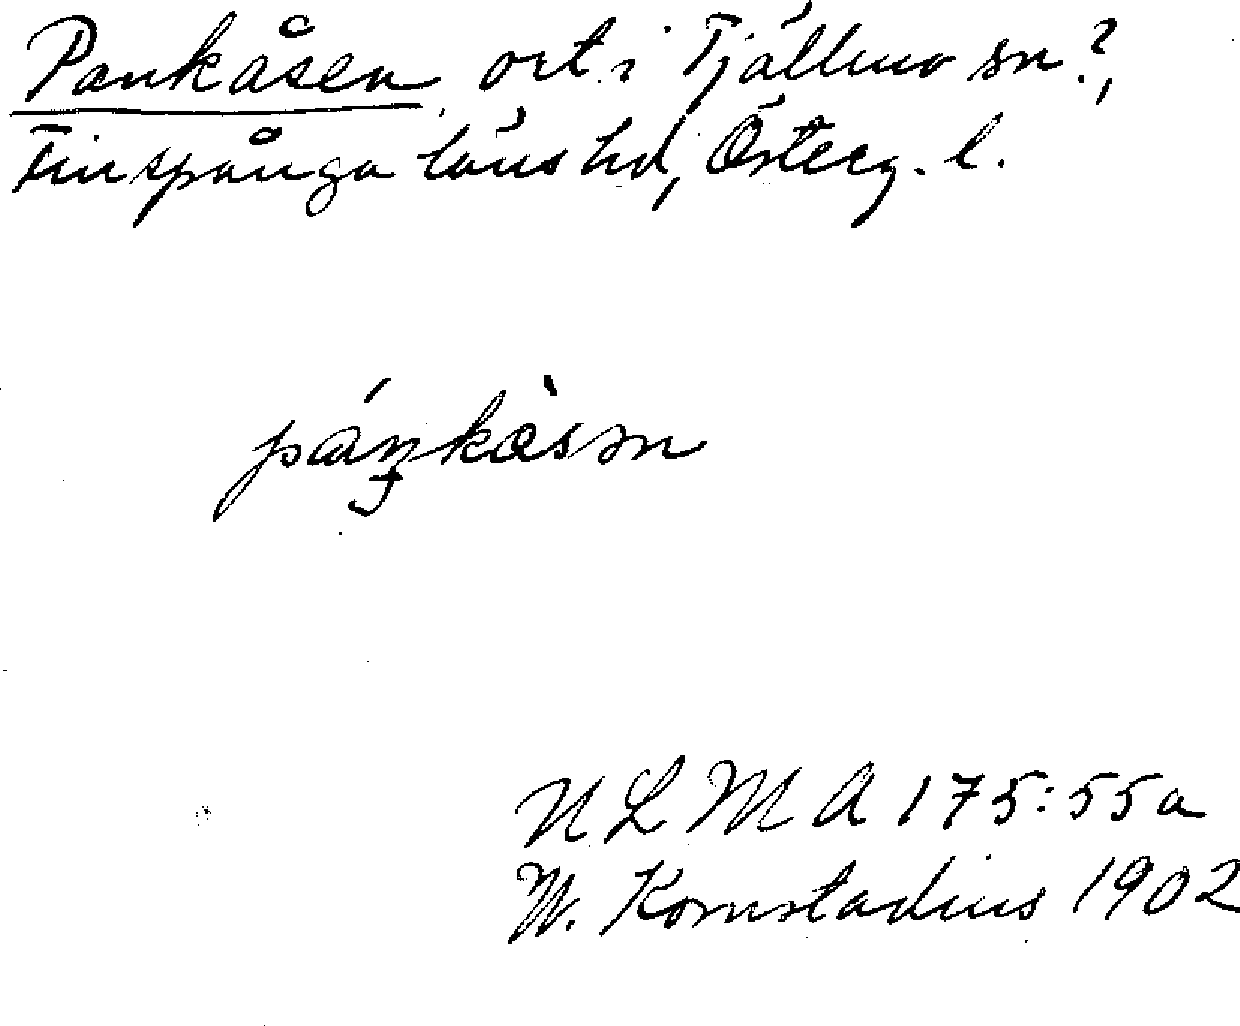 Pankåsen, ort i Tjällmo sn?,
Finspånga läns hd, Österg. l.
pánkàsm
ULMA 175:55a
W. Kornstadius 1902